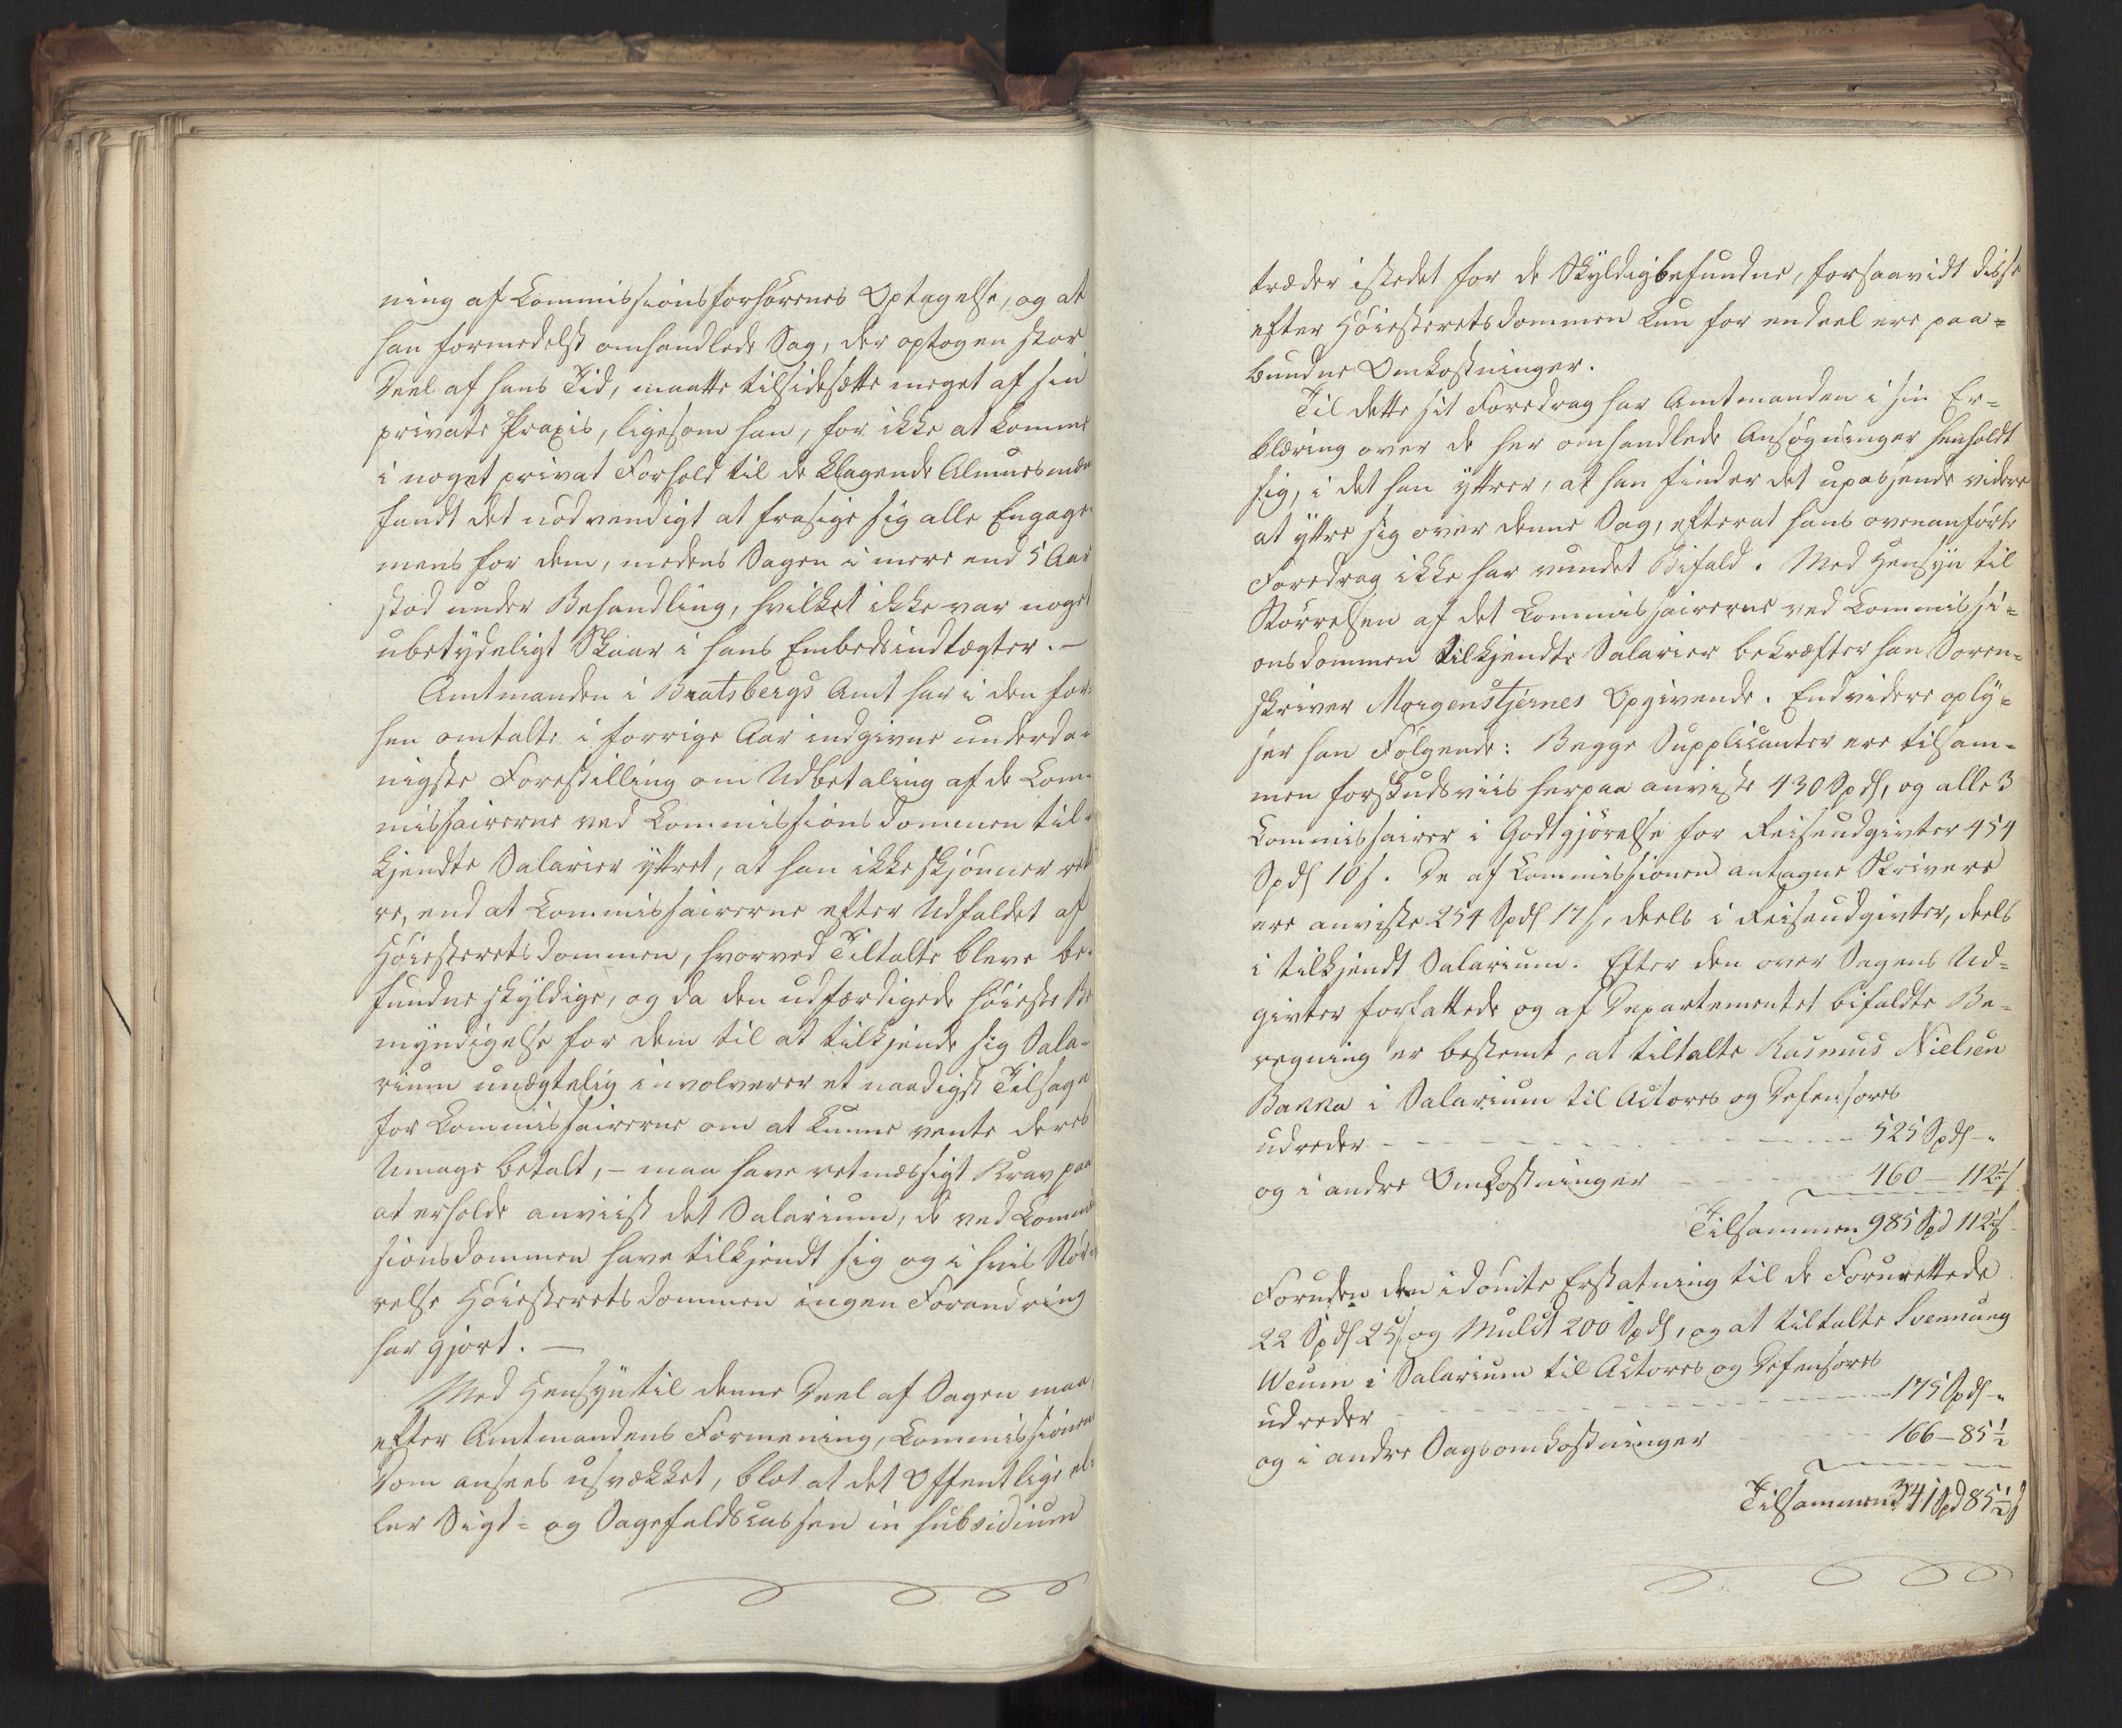 ning af Commissionsforhørenes Optagelse, og at
han formedelst omhandlede Sag, der optog en stor
Deel af hans Tid, maatte tilsidesætte meget af sin
private Praxis, ligesom han, for ikke at komme
i noget privat Forhold til de klagende Almuesmæn
fandt det nødvendigt at frasige sig alle Engage-
mens for dem, medens Sagen i mere end 5 Aar
stod under Behandling, hvilket ikke var noget
ubetydeligt Skaar i hans Embedsindtægter. –
Amtmanden i Bratsbergs Amt har i den for-
hen omtalte i forrige Aar indgivne underda-
nigste Forestilling om Udbetaling af de Com-
missairerne ved Commissionsdommen til-
kjendte Salarier yttret, at han ikke skjønner ret-
re, end at Commissairerne efter Udfaldet af
Høiesteretsdommen, hvorved Tiltalte bleve be-
fundne skyldige, og da den udfærdigede høieste Be
myndigelse for dem til at tilkjende sig Sala-
rium unægtelig involverer et naadigst Tilsagn
for Commissairerne om at kunne vente deres
Umage betalt, – maa have retmæssigt Krav paa
at erholde anviist det Salarium, de ved Commis
sionsdommen have tilkjendt sig og i hvis Stør-
relse Høiesteretsdommen ingen Forandring
har gjort. –
Med Hensyn til denne Deel af Sagen maa,
efter Amtmandens Formening, Commissionens
Dom ansees usvækket, blot at det Offentlige el-
ler Sigt- og Sagefaldscassen in subsidium
træder istedet for de Skyldigbefundne, forsaavidt disse
efter Høiesteretsdommen kun for endeel ere paa-
bundne Omkostninger.
Til dette sit Foredrag har Amtmanden i sin Er-
klæring over de her omhandlede Ansøgninger henholdt
sig, i det han yttrer, at han finder det upassende videre
at yttre sig over denne Sag, efterat hans ovenanførte
Foredrag ikke har vundet Bifald. Med Hensyn til
Størrelsen af det Commissairerne ved Commissi-
onsdommen tilkjendte Salarier bekræfter han Soren-
skriver Morgenstjernes Opgivende. Endvidere oply-
ser han Følgende: Begge Supplicanter ere tilsam-
men forskudsviis herpaa anviste 430 Spd, og alle 3
Commissairer i Godtgjørelse for Reiseudgivter 454
Spd 10 s. De af Commissionen antagne Skrivere
ere anviste 254 Spd 17 s, deels i Reiseudgivter, deels
i tilkjendt Salarium. Efter den over Sagens Ud-
givter forfattede og af Departementet bifaldte Be-
regning er bestemt, at tiltalte Rasmus Nielsen
Bakka i Salarium til Actores og Defensores
udreder - - - - 525 Spd - "
og i andre Omkostninger - - - 460 — 112½ s
Tilsammen 985 Spd 112½ s
Foruden den idømte Erstatning til de Forurettede
22 Spd 25 s og Mulct 200 Spd, og at tiltalte Svennung
Weum i Salarium til Actores og Defensores
udreder - - - - 175 Spd - "
og i andre Sagsomkostninger 166 — 85½
Tilsammen 341 Spd 85½ s